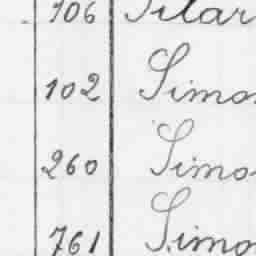 106 Silar
102 Simo
260 Simo
761 Simo